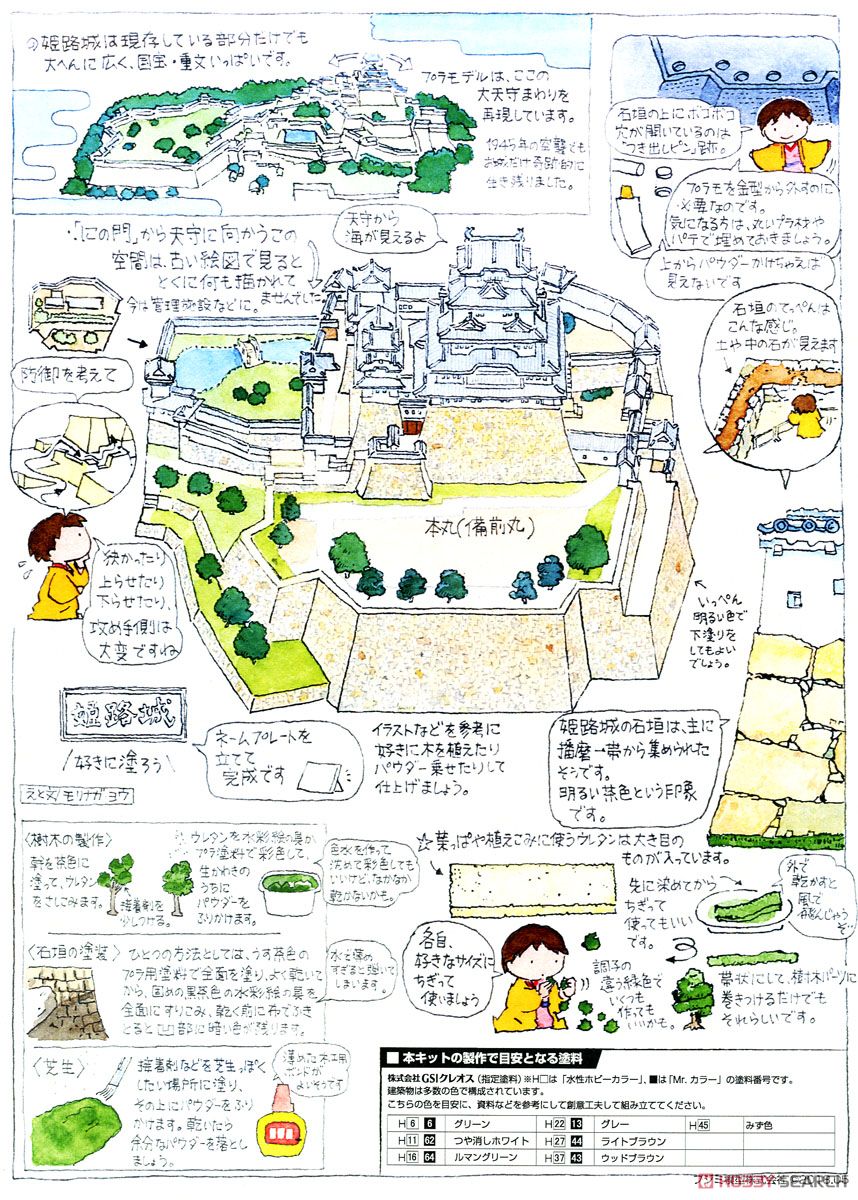 姫路城は現存している部分だけでも
大へんに広く、国宝・重文いっぱいです。
プラモデルは、ここの
大天守まわりを
再現しています。
1945年の空襲でも
お城だけ奇跡的に
生き残りました。
石垣の上にボコボコ
穴が開いているのは
「つき出しピン」跡。
プラモを金型から外すのに
必要なのです。
気になる方は、丸いプラ材や
パテで埋めておきましょう。
上からパウダーかけちゃえば
見えないです
天守から
海が見えるよ
・「にの門」から天守に向かうこの
空間は、古い絵図で見ると
とくに何も描かれて
ませんでした
今は管理施設などに。
石垣のてっぺんは
こんな感じ。
土や中の石が見えます
防御を考えて
狭かったり
上らせたり
下らせたり、
攻め手側は
大変ですね
本丸(備前丸)
いっぺん
明るい色で
下塗りを
してもよい
でしょう。
姫路城
\好きに塗ろう/
ネームプレートを
立てて
完成です
えと文/モリナガ・ヨウ
イラストなどを参考に
好きに木を植えたり
パウダー乗せたりして
仕上げましょう。
姫路城の石垣は、主に
播磨一帯から集められた
そうです。
明るい茶色という印象
です。
〈樹木の製作〉
幹を茶色に
塗って、ウレタン
をさしてみます。
接着剤を
少しつける。
ウレタンを水彩絵の具か
プラ塗料で彩色して、
生かわきの
うちに
パウダーを
ふりかけます。
色水を作って
沈めて彩色しても
いいけど、なかなか
乾かないかも。
☆葉っぱや植えこみに使うウレタンは大き目の
ものが入っています。
先に染めてから
ちぎって
使ってもいい
です。
外で
乾かすと
風で
飛んじゃうぞ…
各自、
好きなサイズに
ちぎって
使いましょう
調子の
違う緑色で
いくつも
作っても
いいかも。
帯状にして、樹木パーツに
巻きつけるだけでも
それらしいです。
〈石垣の塗装〉
ひとつの方法としては、うす茶色の
プラ用塗料で全面を塗り、よく乾いて
から、固めの黒茶色の水彩絵の具を
全面にすりこみ、乾く前に布でふき
とると凹部に暗い色が残ります。
水で薄め
すぎると弾いて
しまいます。
〈芝生〉
接着剤などを芝生っぽく
したい場所に塗り、
その上にパウダーをふり
かけます。乾いたら
余分なパウダーを落とし
ましょう。
薄めた木工用
ボンドが
よいそうです
■ 本キットの製作で目安となる塗料
株式会社GSIクレオス(指定塗料)※H□は「水性ホビーカラー」、■は「Mr.カラー」の塗料番号です。
建築物は多数の色で構成されています。
こちらの色を目安に、資料などを参考にして創意工夫して組み立ててください。
H 6 6 グリーン H 22 13 グレー H 45 みず色
H 11 62 つや消しホワイト H 27 44 ライトブラウン
H 16 64 ルマングリーン H 37 43 ウッドブラウン
フジミ模型株式会社 C 2008.05
HOBBY SEARCH